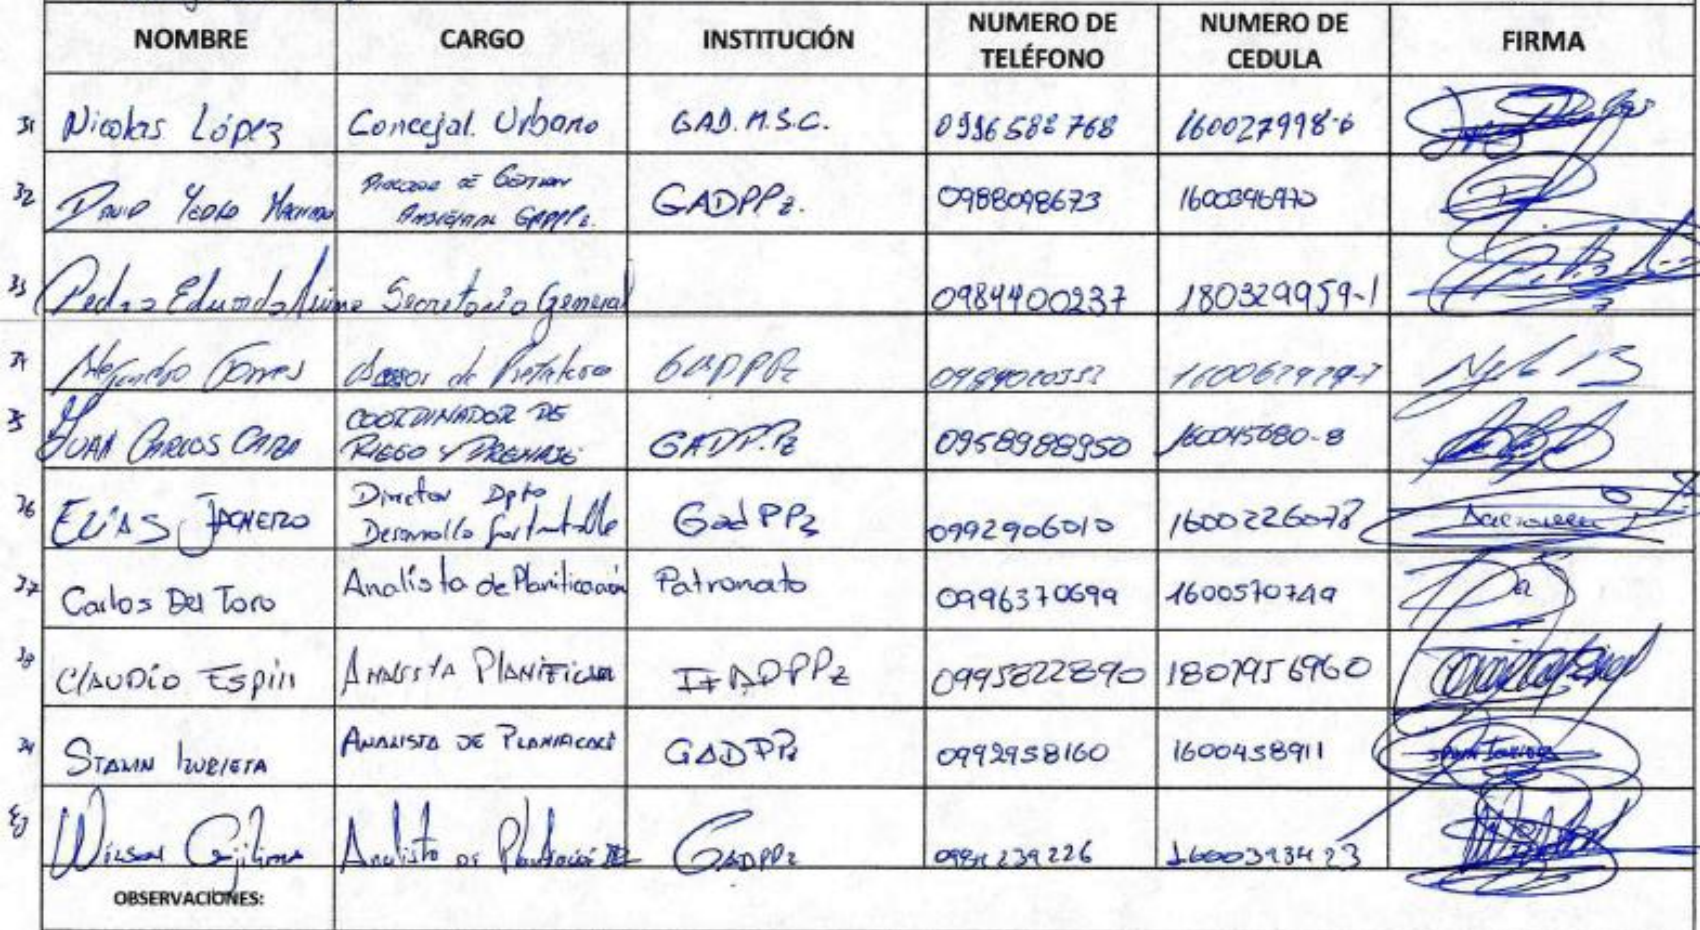 NOMBRE CARGO INSTITUCIÓN NUMERO DE TELÉFONO NUMERO DE CEDULA FIRMA
31 Nicolas López Concejal Urbano GAD.M.S.C. 0996582768 160027998-6
32 David Yedra GADPPz. 0988098673 1600396970
33 Pedro Eduardo Secretario General 0984400237 180329959-1
34 Alejandro Torres Asesor de Prefatura GADPPz
35 JUAN CARLOS COORDINADOR DE RIEGO Y DRENAJE GADP.Pz 0958988950 160045680-8
36 ELIAS JACHERO Director Dpto Desarrollo Sustentable GadPPz 0992906010
37 Carlos Del Toro Analista de Planificación Patronato 0996370699 1600570749
38 CLAUDIO Espin ANALISTA PLANIFICAR GADPPz 0995822890 1801956960
39 STALIN IZURIETA ANALISTA DE PLANIFICACI GADPPz 0992958160 1600458911
40 WILSON Analista de GADPPz 1600393423
OBSERVACIONES: